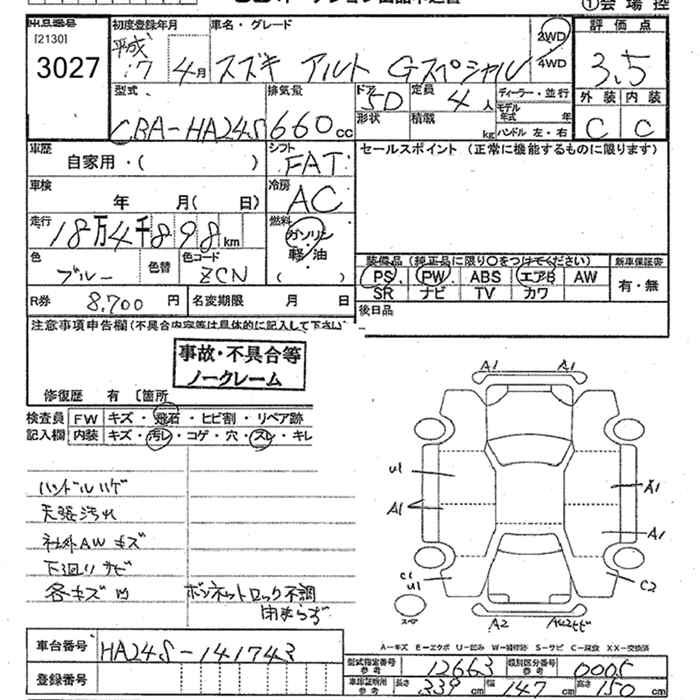 ①会場控
出品番号
[2130]
3027
初度登録年月
平成17 4月
車名・グレード
スズキ アルト Gスペシャル
2WD
4WD
評価点
3.5
外装 内装
C C
型式
CBA-HA24S
排気量
660cc
ドア
5D
定員
4人
形状
積載
kg
ディーラー・並行
モデル年式 年
ハンドル 左・右
車歴
自家用・( )
シフト
FAT
セールスポイント(正常に機能するものに限ります)
車検
年 月( 日)
冷房
AC
走行
18万4千898km
燃料
ガソリン
軽油
( )
色
ブルー
色替
色コード
ZCN
装備品(純正品に限り○をつけてください)
新車保証書
PS PW ABS エアB AW
SR ナビ TV カワ
有・無
R券 8,700円
名変期限 月 日
後日品
注意事項申告欄(不具合内容等は具体的に記入して下さい)
事故・不具合等
ノークレーム
修復歴 有 〔箇所
検査員 FW キズ・飛石・ヒビ割・リペア跡
記入欄 内装 キズ・汚レ・コゲ・穴・スレ・キレ
ハンドルハゲ
天張汚れ
社外AWキズ
下廻りサビ
各キズ凹
ボンネットロック不調
閉まらず
A1 A1
U1
A1
A1
A1
C1
U1
C2
スペア
A2
A-キズ E-エクボ U-凹み W-補修跡 S-サビ C-腐食 XX-交換済
車台番号 HA24S-141743
型式指定番号 参考 12663
類別区分番号 参考 0005
登録番号
車庫証明用 参考 長さ 339cm 幅 147cm 高さ 150cm